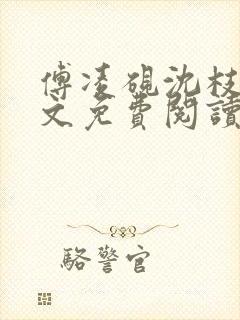 傅凌硯沈枝
文免費閱讀
駱警官